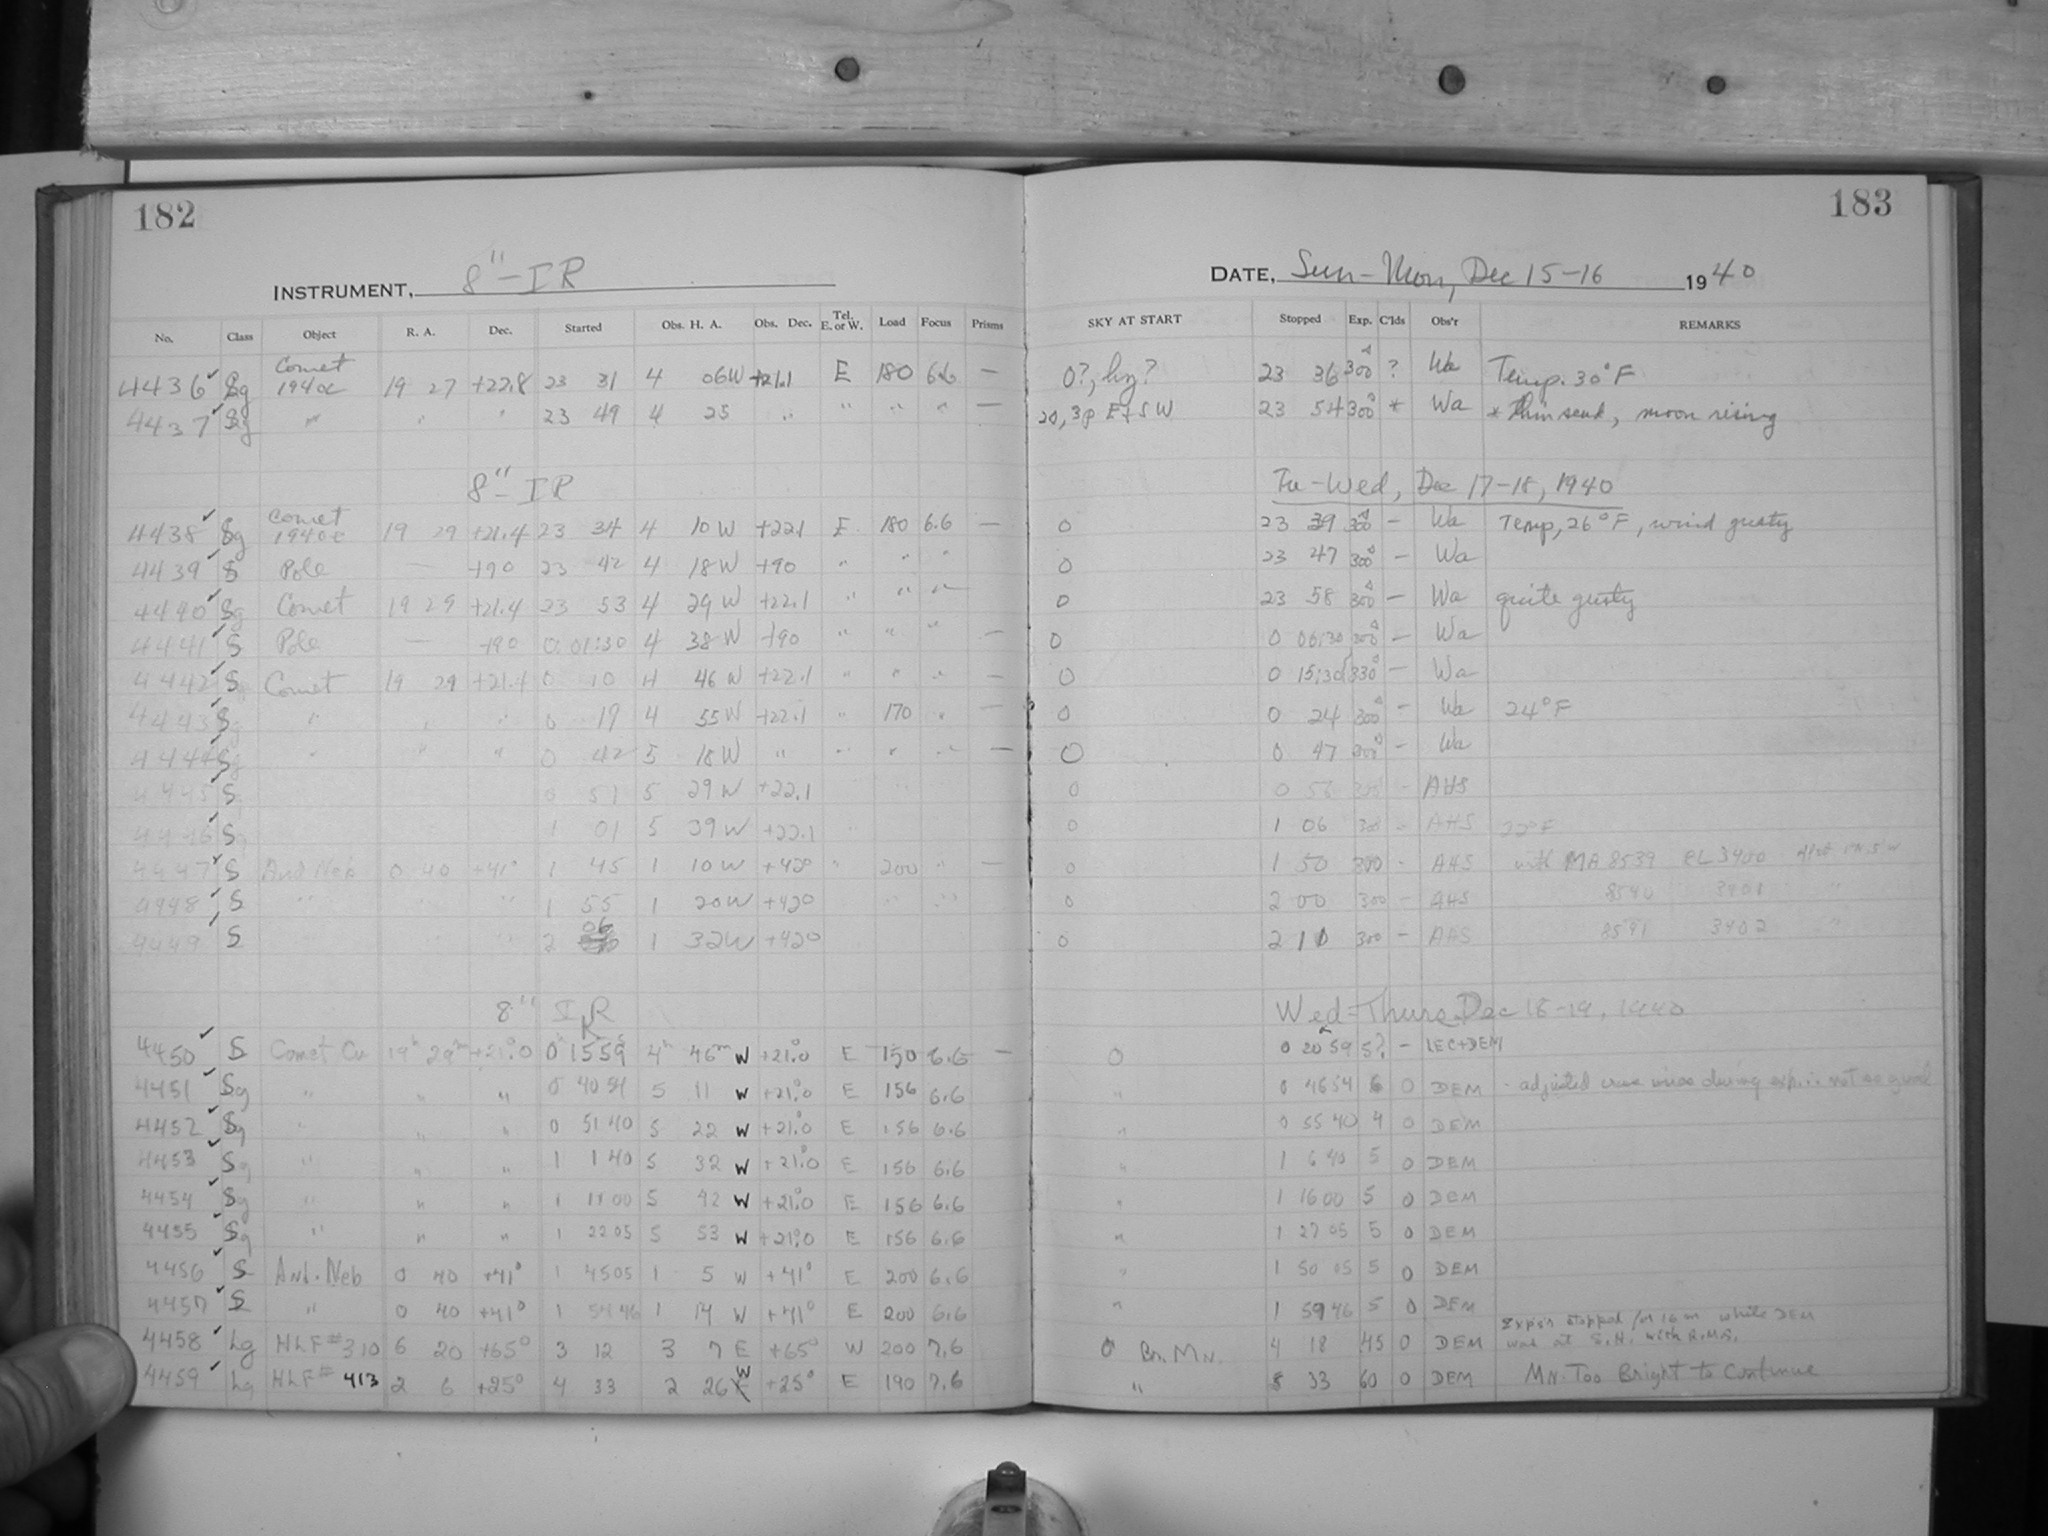 182
183
INSTRUMENT, 8"-IR
DATE, Sun-Mon, Dec 15-16 1940
No. Class Object R. A. Dec. Started Obs. H. A. Obs. Dec. Tel. E. or W. Load Focus Prisms SKY AT START Stopped Exp. C'lds Obs'r REMARKS
4436 Sg Comet 1940c 19 27 +22.8 23 31 4 06W +21.1 E 180 6.6 — 0?, hzy? 23 36 300s ? Wa Temp. 30°F
4437 Sg " " " 23 49 4 25 " " " " — 20, 3p E+SW 23 54 300s * Wa * thin scud, moon rising
8"-IR Tu-Wed, Dec 17-18, 1940
4438 Sg Comet 1940c 19 29 +21.4 23 34 4 10W +22.1 E 180 6.6 — 0 23 39 300s — Wa Temp, 26°F, wind gusty
4439 S Pole — +90 23 42 4 18W +90 " " " 0 23 47 300s — Wa
4440 Sg Comet 19 29 +21.4 23 53 4 29W +22.1 " " " 0 23 58 300s — Wa quite gusty
4441 S Pole — +90 0 01:30 4 38W +90 " " " — 0 0 06:30 300s — Wa
4442 Sg Comet 19 29 +21.4 0 10 4 46W +22.1 " " " — 0 0 15:30 330s — Wa
4443 Sg " " " 0 19 4 55W +22.1 " 170 " — 0 0 24 300s — Wa 24°F
4444 Sg " " " 0 42 5 18W " " " " — 0 0 47 300s — Wa
4445 S 0 51 5 29W +22.1 0 0 56 300 - AHS
4446 Sg 1 01 5 39W +22.1 0 1 06 300 - AHS 22°F
4447 S And Neb 0 40 +41° 1 45 1 10W +42° " 200 " — 0 1 50 300 - AHS with MA 8539 RL 3400
4448 S " " " 1 55 1 20W +42° " " 0 2 00 300 - AHS 8540 3401 "
4449 S " " 2 06 1 32W +42° 0 2 10 300 - AHS 8541 3402 "
8" IR Wed-Thurs Dec 18-19, 1940
4450 S Comet Cu 19h 29m +21.0 0 15 59 4h 46m W +21.0 E 150 6.6 — 0 0 20 59 5? - LEC+DEM
4451 Sg " " " 0 40 54 5 11 W +21.0 E 156 6.6 " 0 46 54 6 0 DEM - adjusted cross wires during exp. not so good
4452 Sg " " " 0 51 40 5 22 W +21.0 E 156 6.6 " 0 55 40 4 0 DEM
4453 Sg " " " 1 1 40 5 32 W +21.0 E 156 6.6 " 1 6 40 5 0 DEM
4454 Sg " " " 1 11 00 5 42 W +21.0 E 156 6.6 " 1 16 00 5 0 DEM
4455 Sg " " " 1 22 05 5 53 W +21.0 E 156 6.6 " 1 27 05 5 0 DEM
4456 S And. Neb 0 40 +41° 1 45 05 1 5 W +41° E 200 6.6 " 1 50 05 5 0 DEM
4457 S " 0 40 +41° 1 54 46 1 14 W +41° E 200 6.6 " 1 59 46 5 0 DEM
4458 Lg HLF #310 6 20 +65° 3 12 3 7 E +65° W 200 7.6 0 Br. Mn. 4 18 45 0 DEM Exp's stopped for 16m while DEM was at S.H. with R.M.S.
4459 Lg HLF # 413 2 6 +25° 4 33 2 26 W +25° E 190 7.6 " 8 33 60 0 DEM Mn. Too Bright to Continue